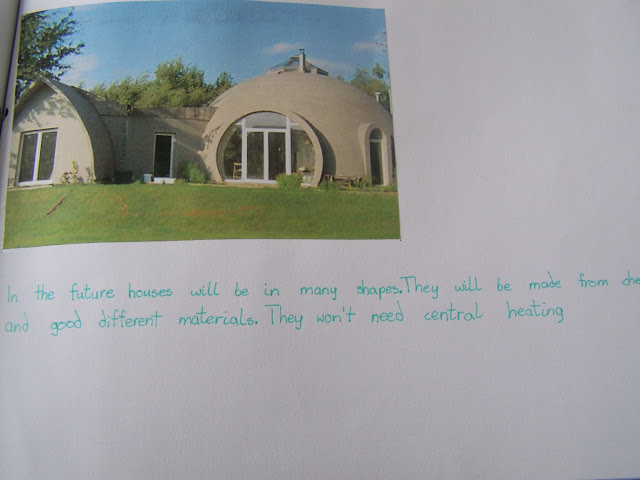 In the future houses will be in many shapes. They will be made from
and good different materials. They won't need central heating